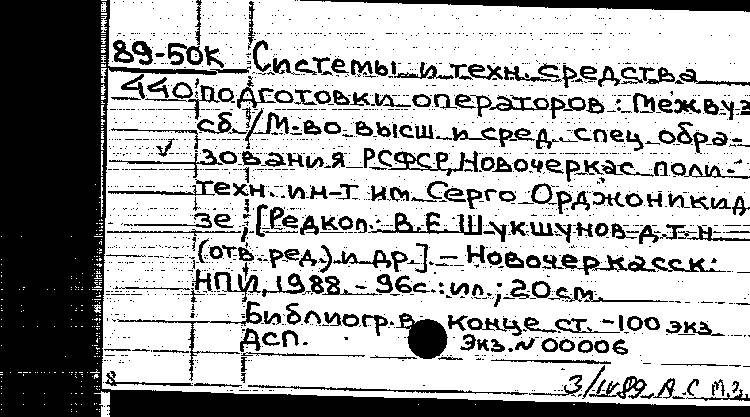 89-50К Системы и техн. средства
440 подготовки операторов : Межвуз
сб. / М-во высш. и сред. спец. обра-
√ зования РСФСР, Новочеркас. поли-
техн. ин-т им. Серго Орджоникид
зе ; [Редкол.: В.Е. Шукшунов д.т.н
(отв. ред.) и др.]. – Новочеркасск:
НПИ, 1988. – 96с.: ил.; 20 см.
Библиогр. в конце ст. – 100 экз.
ДСП. Экз. N 00006
8 3/IV89